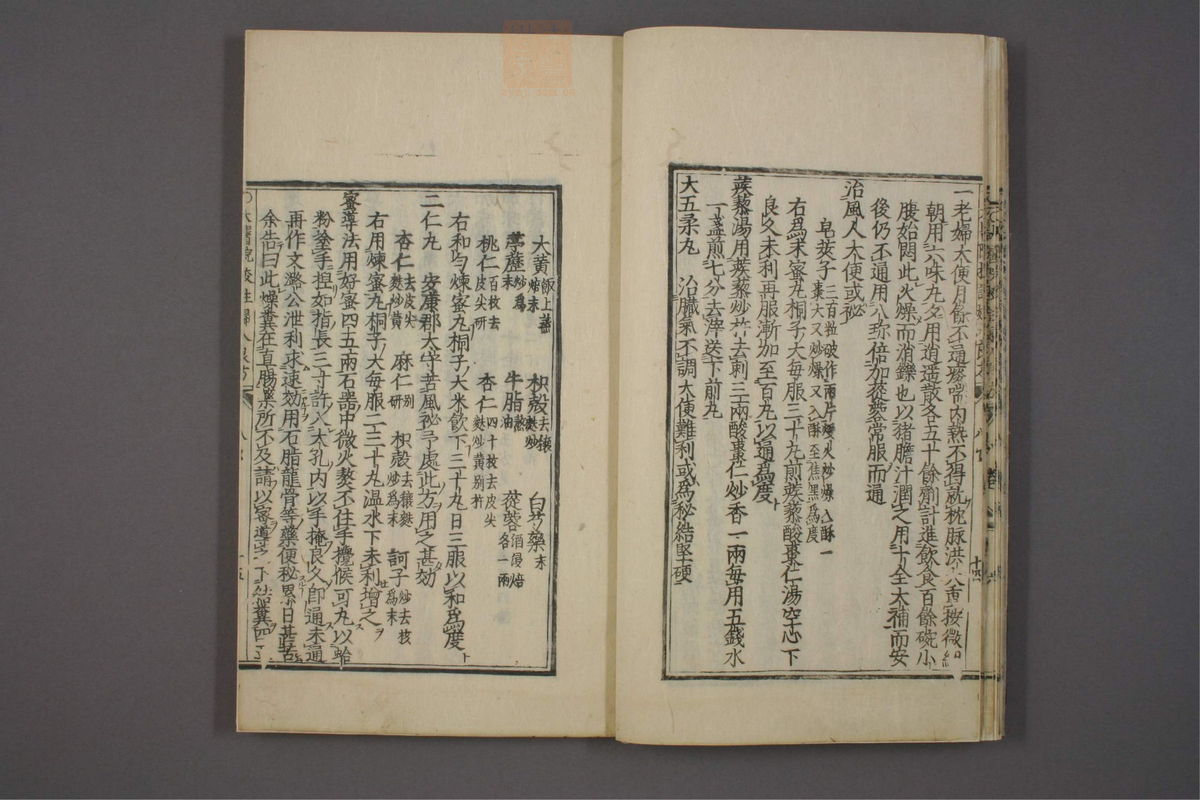 一老婦大便月餘不通痰喘內熱不得就枕脉洪大重按微細
朝用六味丸夕用逍遙散各五十餘劑計進飲食百餘碗小
腹始悶此火燥而消鑠也以猪膽汁潤之用十全大補而安
後仍不通用八珍倍加蓯蓉常服而通
治風人大便或祕
皂莢子三百粒破作兩片慢火炒燥入酥一
棗大又炒燥又入酥至焦黑為度
右為末蜜丸桐子大每服三十丸煎蒺藜酸棗仁湯空心下
良久未利再服漸加至百丸以通為度
蒺藜湯用蒺藜炒杵去刺三兩酸棗仁炒香一兩每用五錢水
一盞煎七分去滓送下前丸
大五柔丸 治臟氣不調大便難利或為秘結堅硬
大黃飯上蒸炒末 枳殼去穰麩炒 白芍藥末
葶藶炒為末 牛脂熬油 蓯蓉酒浸焙各一兩
桃仁百枚去皮尖研 杏仁四十枚去皮尖麩炒黃別杵
右和勻煉蜜丸桐子大米飲下三十丸日三服以和為度
二仁丸 安康郡太守苦風祕予處此方用之甚効
杏仁去皮尖麩炒黃 麻仁別研 枳殼去穰麩炒為末 訶子炒去核為末
右用煉蜜丸桐子大每服二三十丸温水下未利增之
蜜導法用好蜜四五兩石器中微火熬不住手攪候可丸以蛤
粉塗手揑如指長三寸許入大孔內以手掩良久即通未通
再作文潞公泄利求速効用石脂龍骨等藥便秘累日甚苦
余告曰此燥糞在直腸藥所不及請以蜜導之下結糞四五